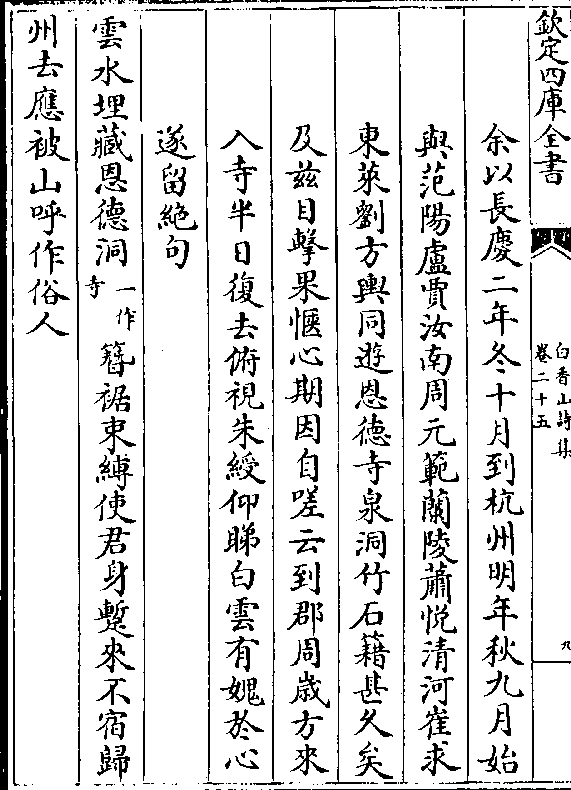 欽定四庫全書
白香山詩集
卷二十五
九
余以長慶二年冬十月到杭州明年秋九月始
與范陽盧賈汝南周元範蘭陵蕭悅清河崔求
東萊劉方輿同遊恩德寺泉洞竹石籍甚久矣
及茲目擊果愜心期因自嗟云到郡周歲方來
入寺半日復去俯視朱綬仰睇白雲有媿於心
遂留絕句
雲水埋藏恩德洞一作寺簪裾束縛使君身蹔來不宿歸
州去應被山呼作俗人